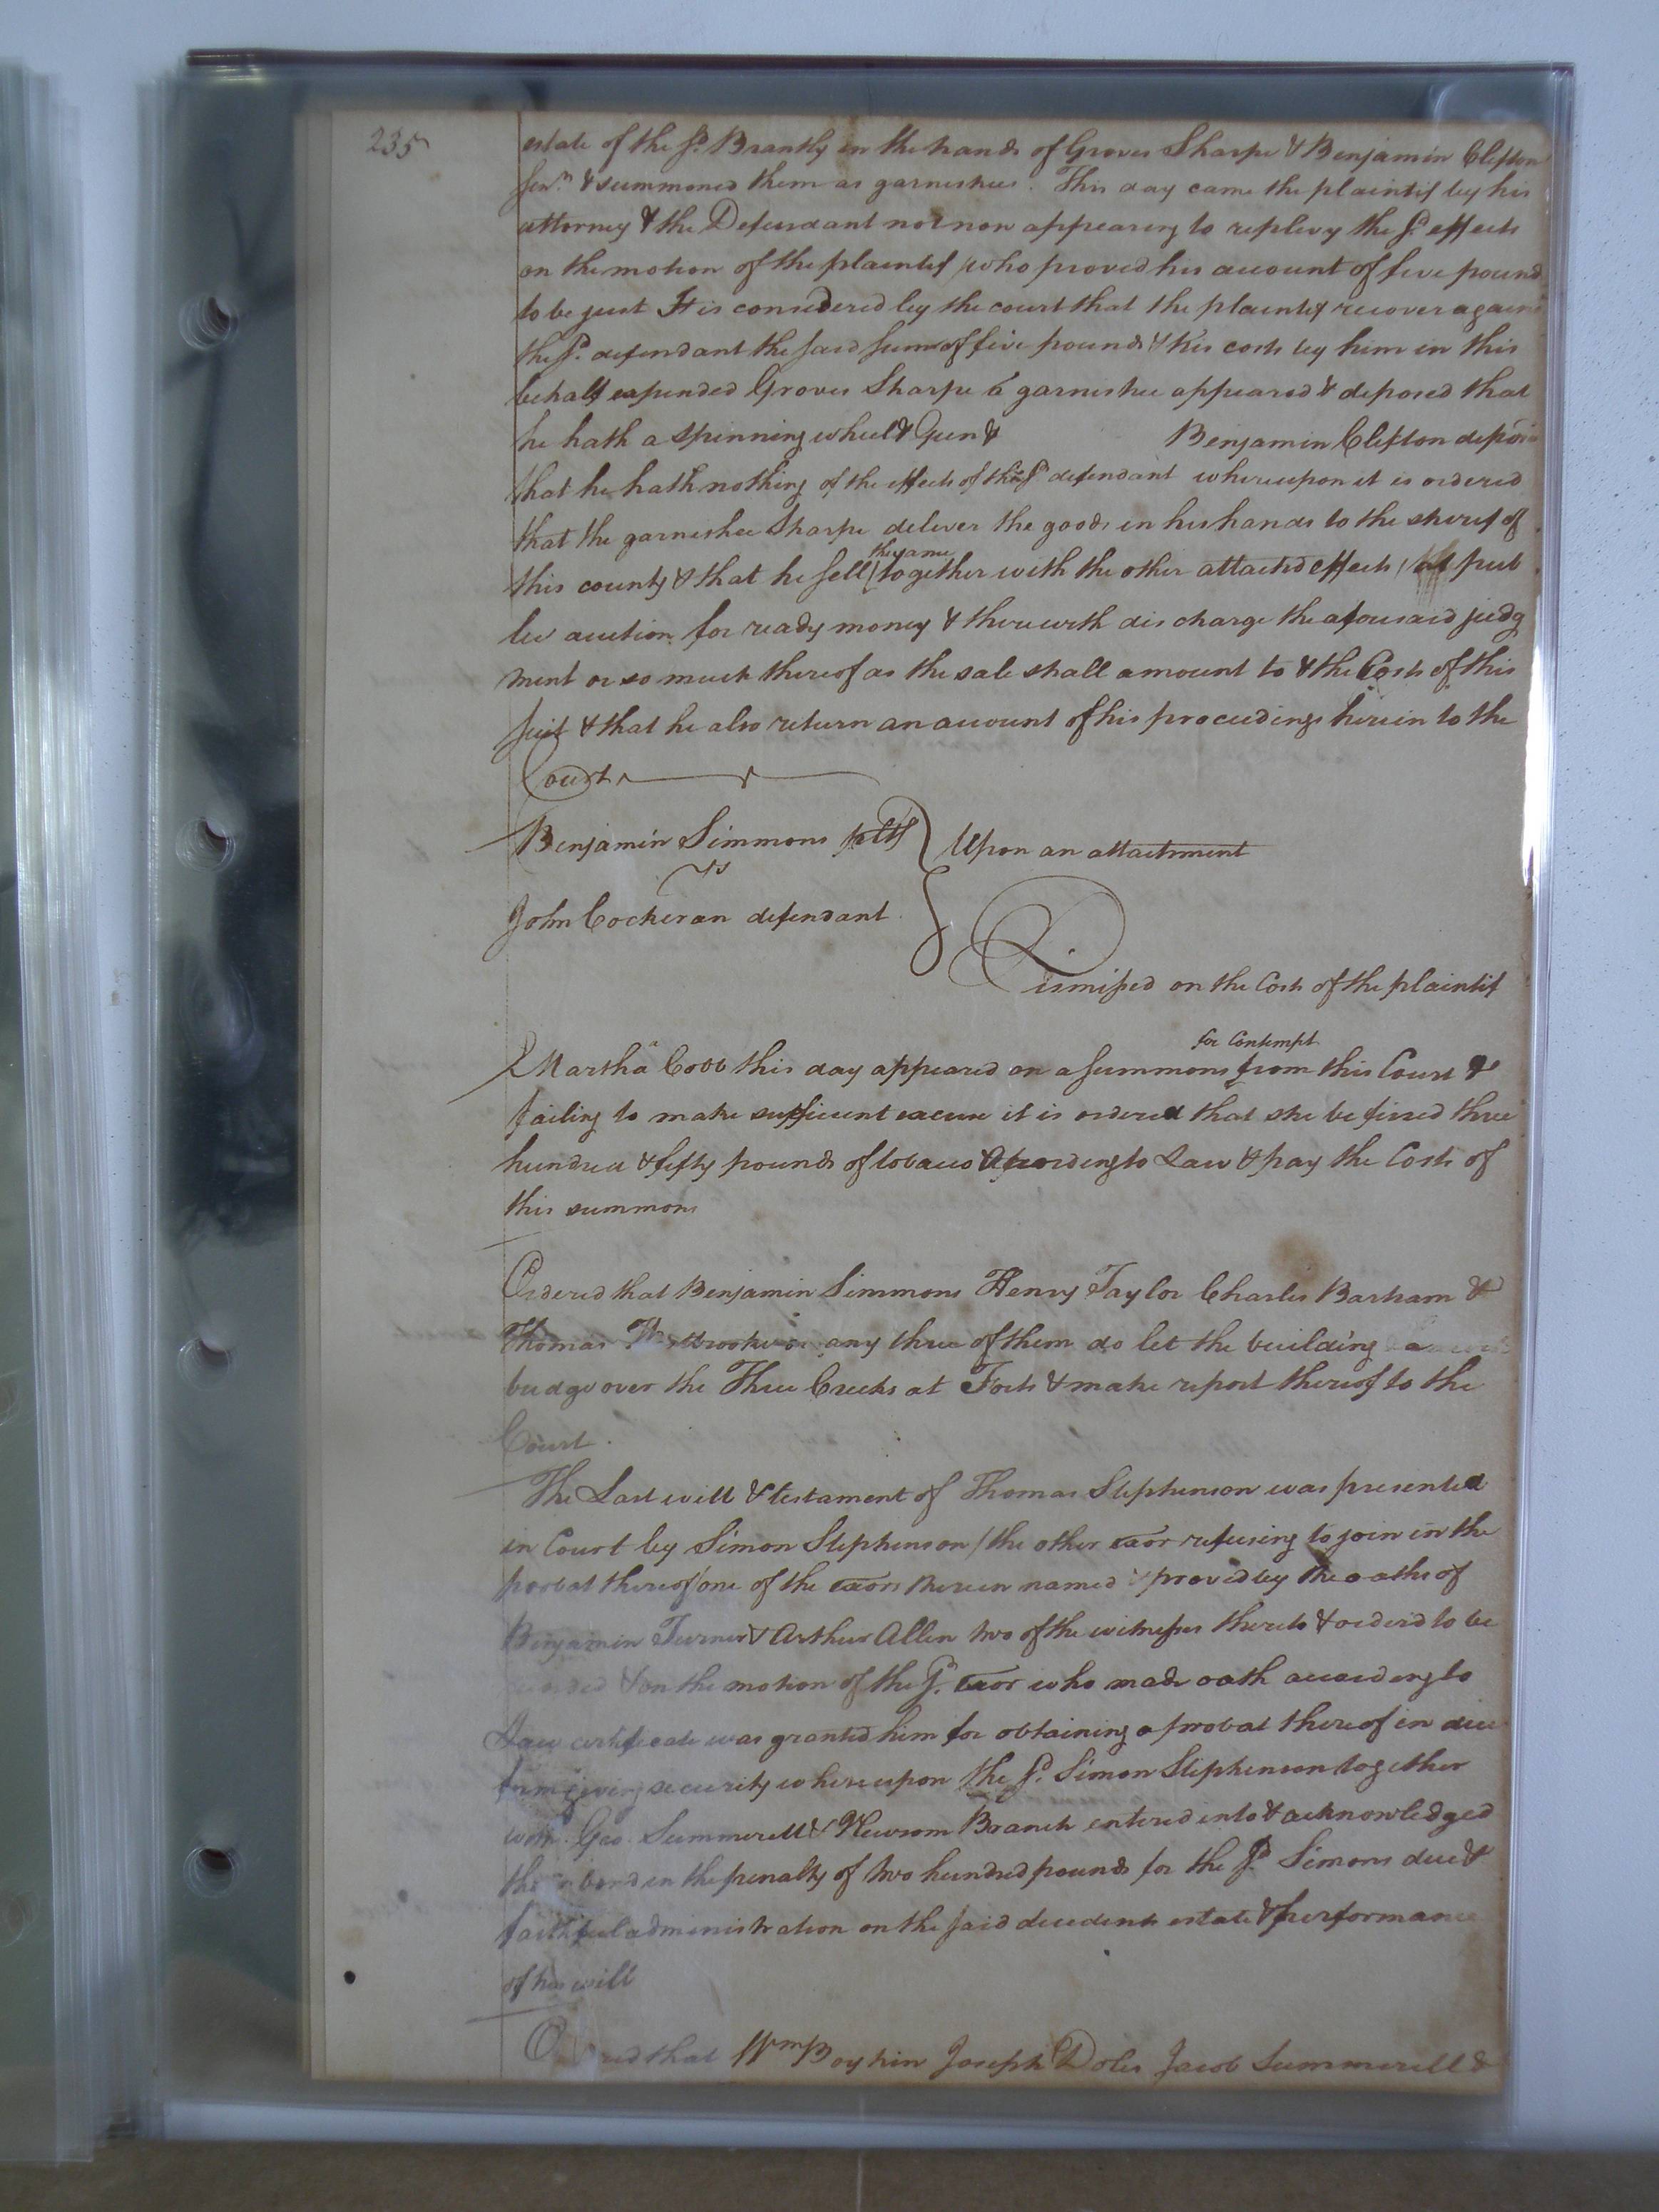 235
estate of the sd. Brantly in the hands of Groves Sharpe & Benjamin Clifton
Senr. & summoned them as garnishees. This day came the plaintif by his
attorney & the Defendant not now appearing to replevy the sd. effects
on the motion of the plaintif who proved his account of five pound
to be just It is considered by the court that the plaintif recover again
the sd. defendant the said sum of five pounds & his costs by him in this
behalf expended Groves Sharpe a garnishee appeared & deposed that
he hath a spinning wheel & Gun & Benjamin Clifton depos
that he hath nothing of the effects of the sd. defendant whereupon it is ordered
that the garnishee Sharpe deliver the goods in his hands to the sherif of
this county & that he sell the same together with the other attached effects at pub
lic auction for ready money & therewith discharge the aforesaid judg
ment or so much thereof as the sale shall amount to & the Costs of this
suit & that he also return an account of his proceedings herein to the
Court
Benjamin Simmons pltf } Upon an attachment
vs
John Cockeran defendant
Dismissed on the Costs of the plaintif
for Contempt
Martha Cobb this day appeared on a summons from this Court &
failing to make sufficient excuse it is ordered that she be fined three
hundred & fifty pounds of tobacco According to Law & pay the Costs of
this summons
Ordered that Benjamin Simmons Henry Taylor Charles Barham &
Thomas any three of them do let the building a
bridge over the Three Creeks at Forts & make report thereof to the
Court.
The Last will & testament of Thomas Stephenson was presented
in Court by Simon Stephenson (the other exor refusing to join in the
probat thereof) one of the exors therein named & proved by the oaths of
Benjamin Turner & Arthur Allen two of the witnesses thereto & orderd to be
& on the motion of the sd. exor who made oath according to
Law certificate was granted him for obtaining a probat thereof in due
form giving security whereupon the sd. Simon Stephenson together
with Geo. Summerell & Newsom Branch entered into & acknowledged
their bond in the penalty of two hundred pounds for the sd. Simons due &
faithful administration on the said decedents estate & performance
of his will
Ordered that Wm Boykin Joseph Doles Jacob Summerell &